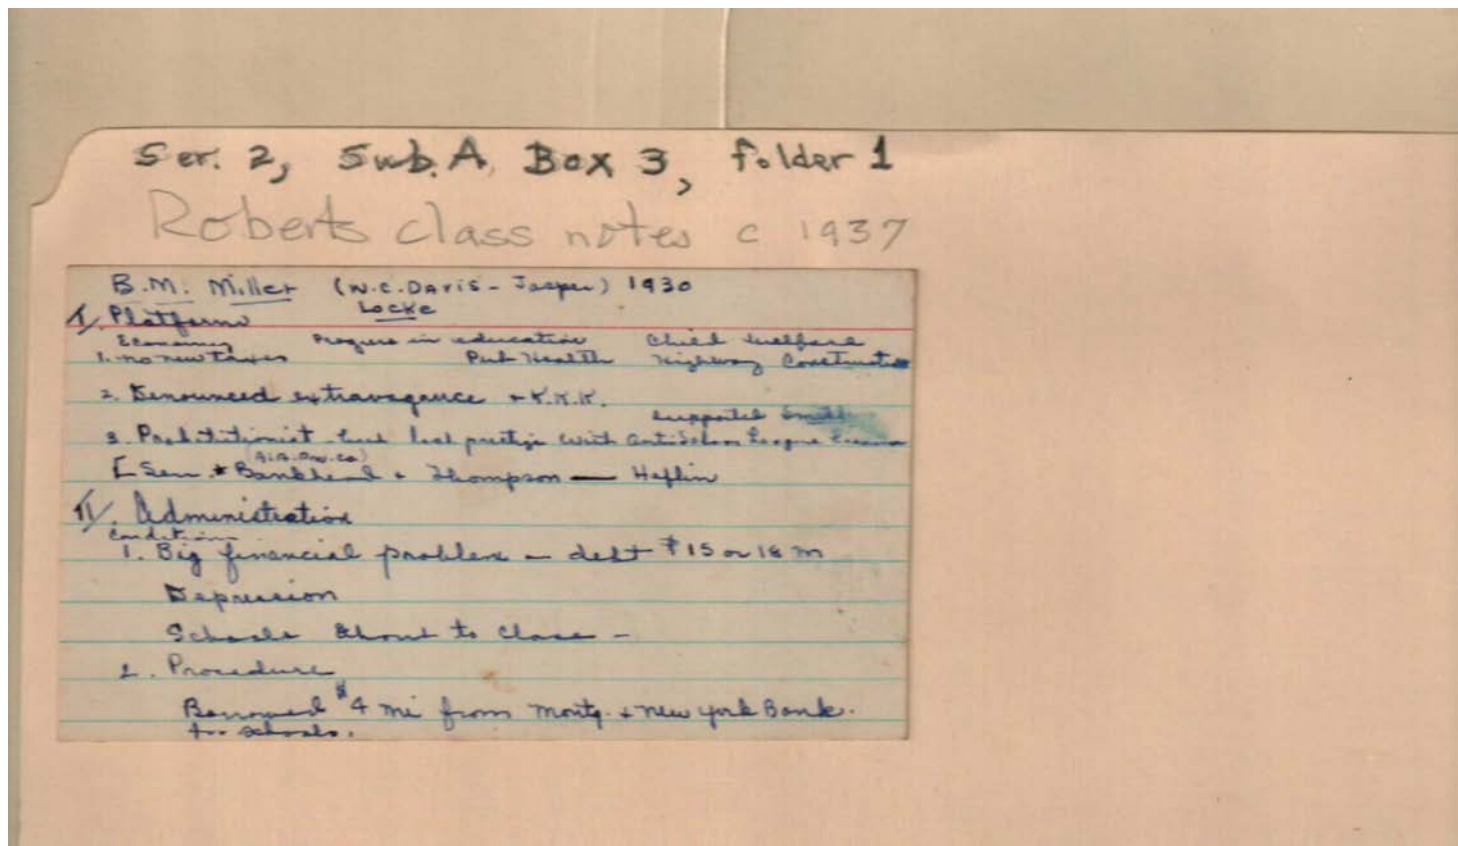 Ser. 2, Sub. A, Box 3, folder 1
Roberts class notes c 1937
B.M. Miller (W.C. Davis - Jasper) 1930
Locke
I. Platform
Economy Progress in education Child welfare
1. no new taxes Pub Health Highway Construction
2. Denounced extravagance + K.K.K.
Supported Smith
3. Prohibitionist but lost prestige with Anti Saloon League
(Ala. Pow. Co)
[Sen. * Bankhead + Thompson — Heflin
II. Administration
Conditions
1. Big financial problem - debt $15 or 18 m
Depression
Schools about to close -
2. Procedure
Borrowed $4 mi from Montg. + New York Bank.
for schools.